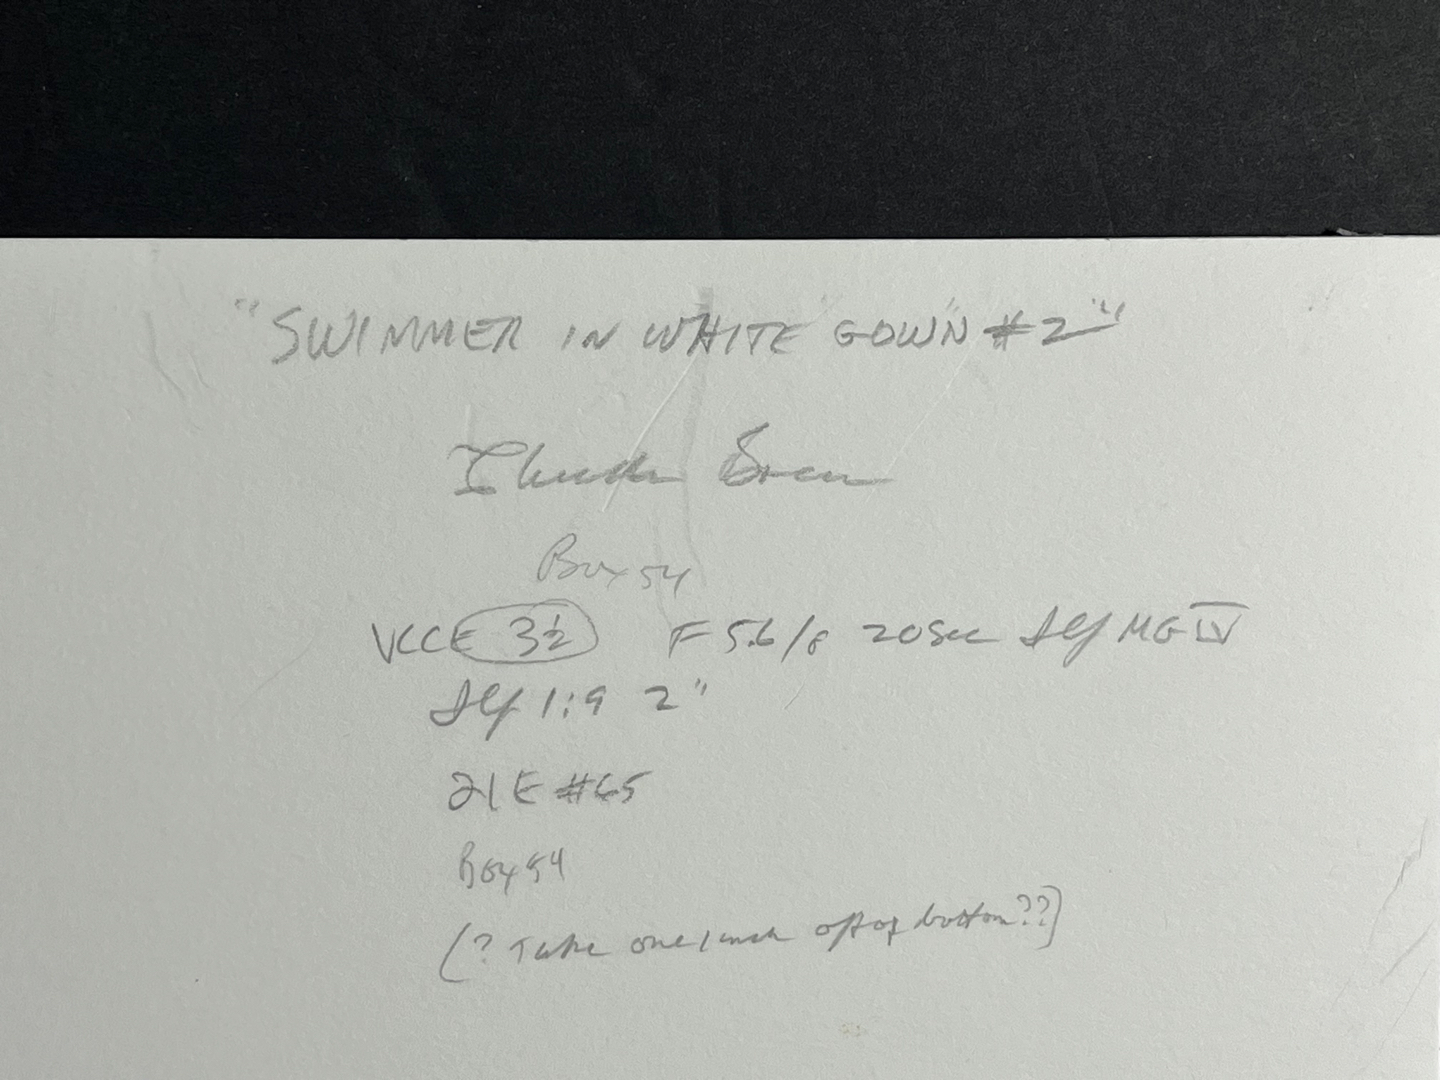 "SWIMMER IN WHITE GOWN #2"
Box 54
VCCE 3½ F 5.6/8 20 Sec MG IV
1:9 2"
21E #65
Box 54
(? Take one inch off of bottom??)